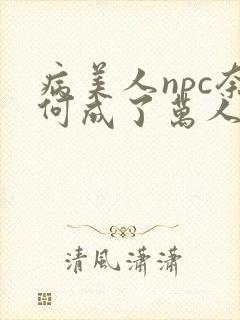 病美人npc奈
何成了萬人
清風瀟瀟